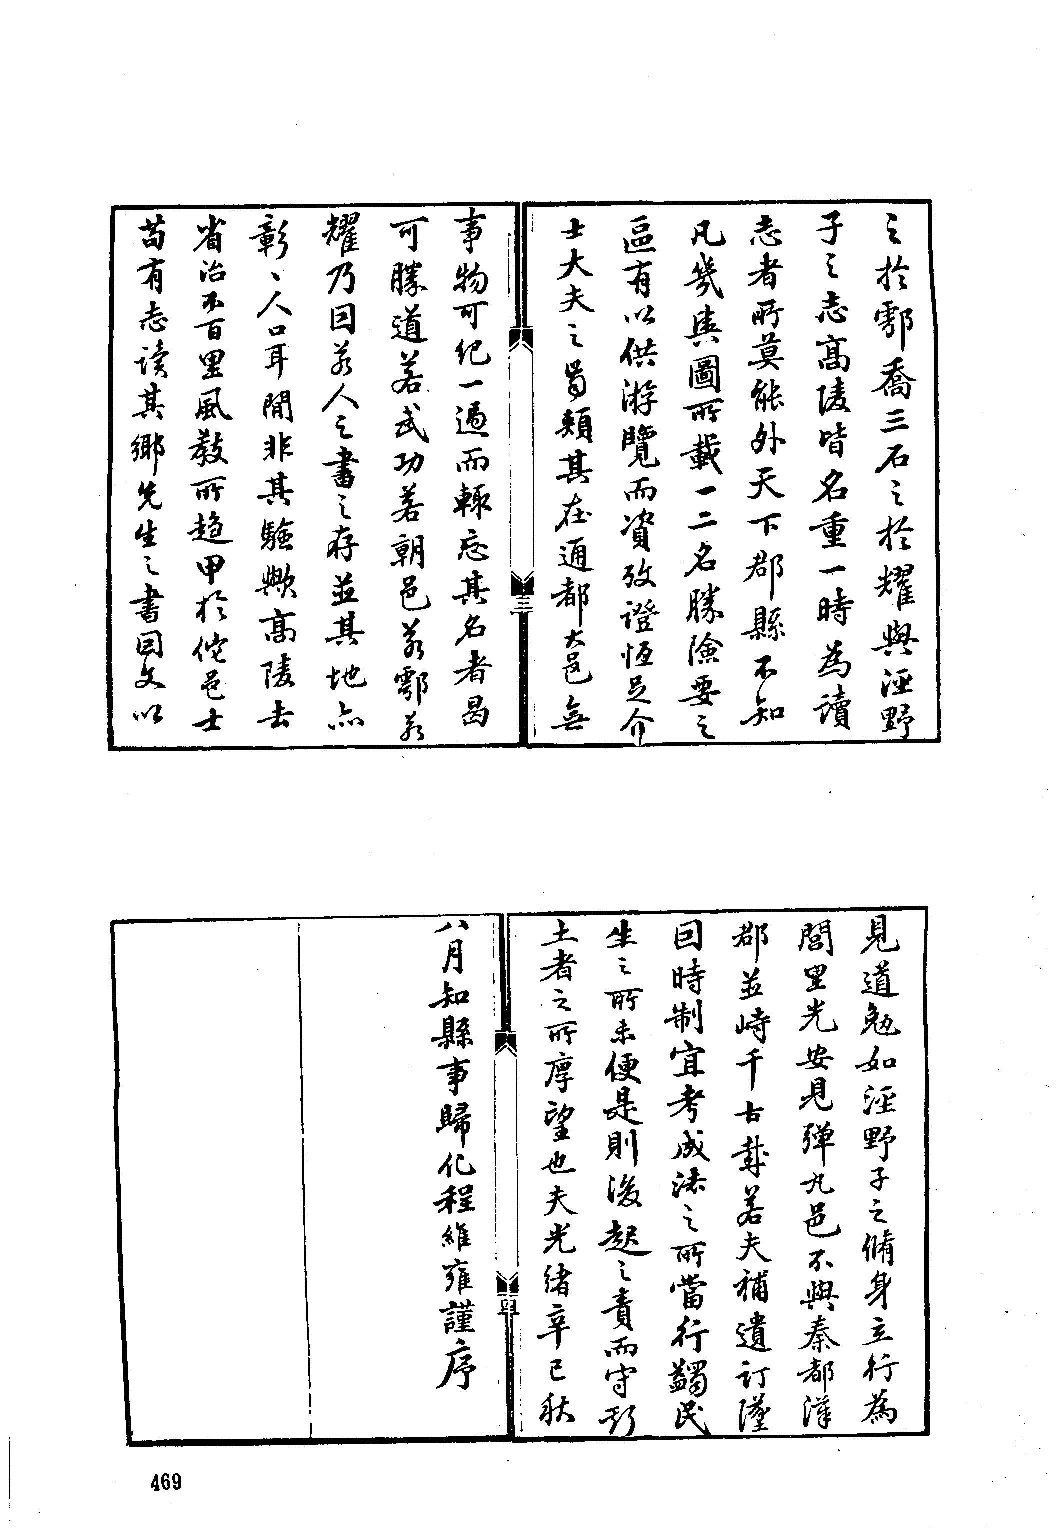 之於鄠喬三石之於耀與涇野
子之志高陵皆名重一時為讀
志者所莫能外天下郡縣不知
凡幾輿圖所載一二名勝險要之
區有以供游覽而資攷證恆足介
士大夫之蜀頬其在通都大邑無
三
事物可紀一過而輒忘其名者曷
可勝道若武功若朝邑若鄠若
耀乃因若人之書之存並其地亦
彰〻人口耳間非其驗歟高陵去
省治不百里風教所趨甲於佗邑士
苟有志讀其鄉先生之書因文以
見道勉如涇野子之脩身立行為
閭里光安見彈丸邑不與秦都漢
郡並峙千古哉若夫補遺訂墜
因時制宜考成法之所當行蠲民
生之所未便是則後起之責而守斯
土者之所厚望也夫光緒辛巳秋
四
八月知縣事歸化程維雍謹序
469